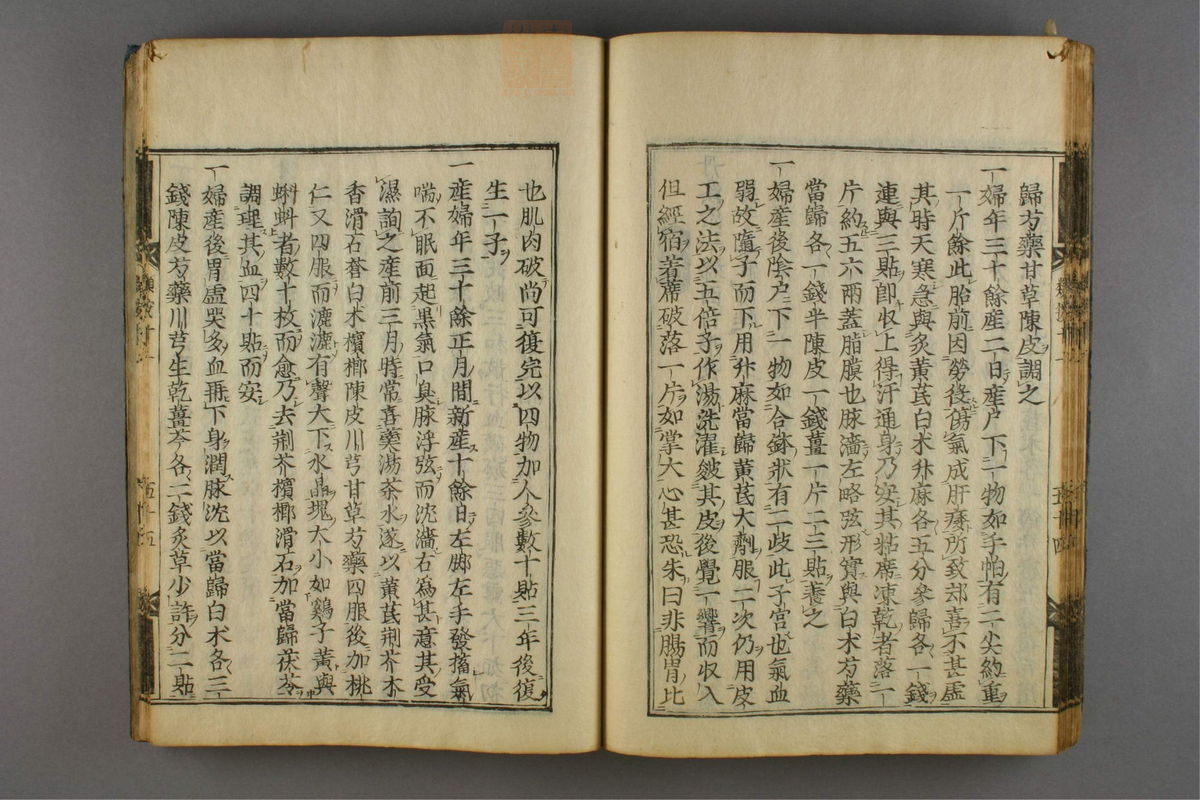 歸芍藥甘草陳皮調之
一婦年三十餘産二日産户下一物如手帕有二尖約重
一斤餘此胎前因勞役傷氣成肝痿所致却喜不甚虛
其時天寒急與炙黃芪白朮升麻各五分參歸各一錢
連與三貼即収上得汗通身乃安其粘席凍乾者落一
片約五六兩蓋脂膜也脉濇左略弦形實與白朮芍藥
當歸各一錢半陳皮一錢薑一片二三貼養之
一婦産後陰户下一物如合鉢狀有二歧此子宮也氣血
弱故隨子而下用升麻當歸黃芪大劑服二次仍用皮
工之法以五倍子作湯洗濯皴其皮後覺一響而収入
但經宿著席破落一片如掌大心甚恐朱曰非腸胃比
也肌肉破尚可復完以四物加人參數十貼三年後復
生一子
一産婦年三十餘正月間新産十餘日左脚左手發搐氣
喘不眠面起黑氣口臭脉浮弦而沈濇右爲甚意其受
濕詢之産前三月時常喜羹湯茶水遂以黃芪荆芥木
香滑石蒼白朮檳榔陳皮川芎甘草芍藥四服後加桃
仁又四服而漉漉有聲大下水晶塊大小如鷄子黃與
蝌蚪者數十枚而愈乃去荆芥檳榔滑石加當歸茯苓
調理其血四十貼而安
一婦産後胃虛哭多血再下身潤脉沈以當歸白朮各三
錢陳皮芍藥川芎生乾薑芩各二錢炙草少許分二貼